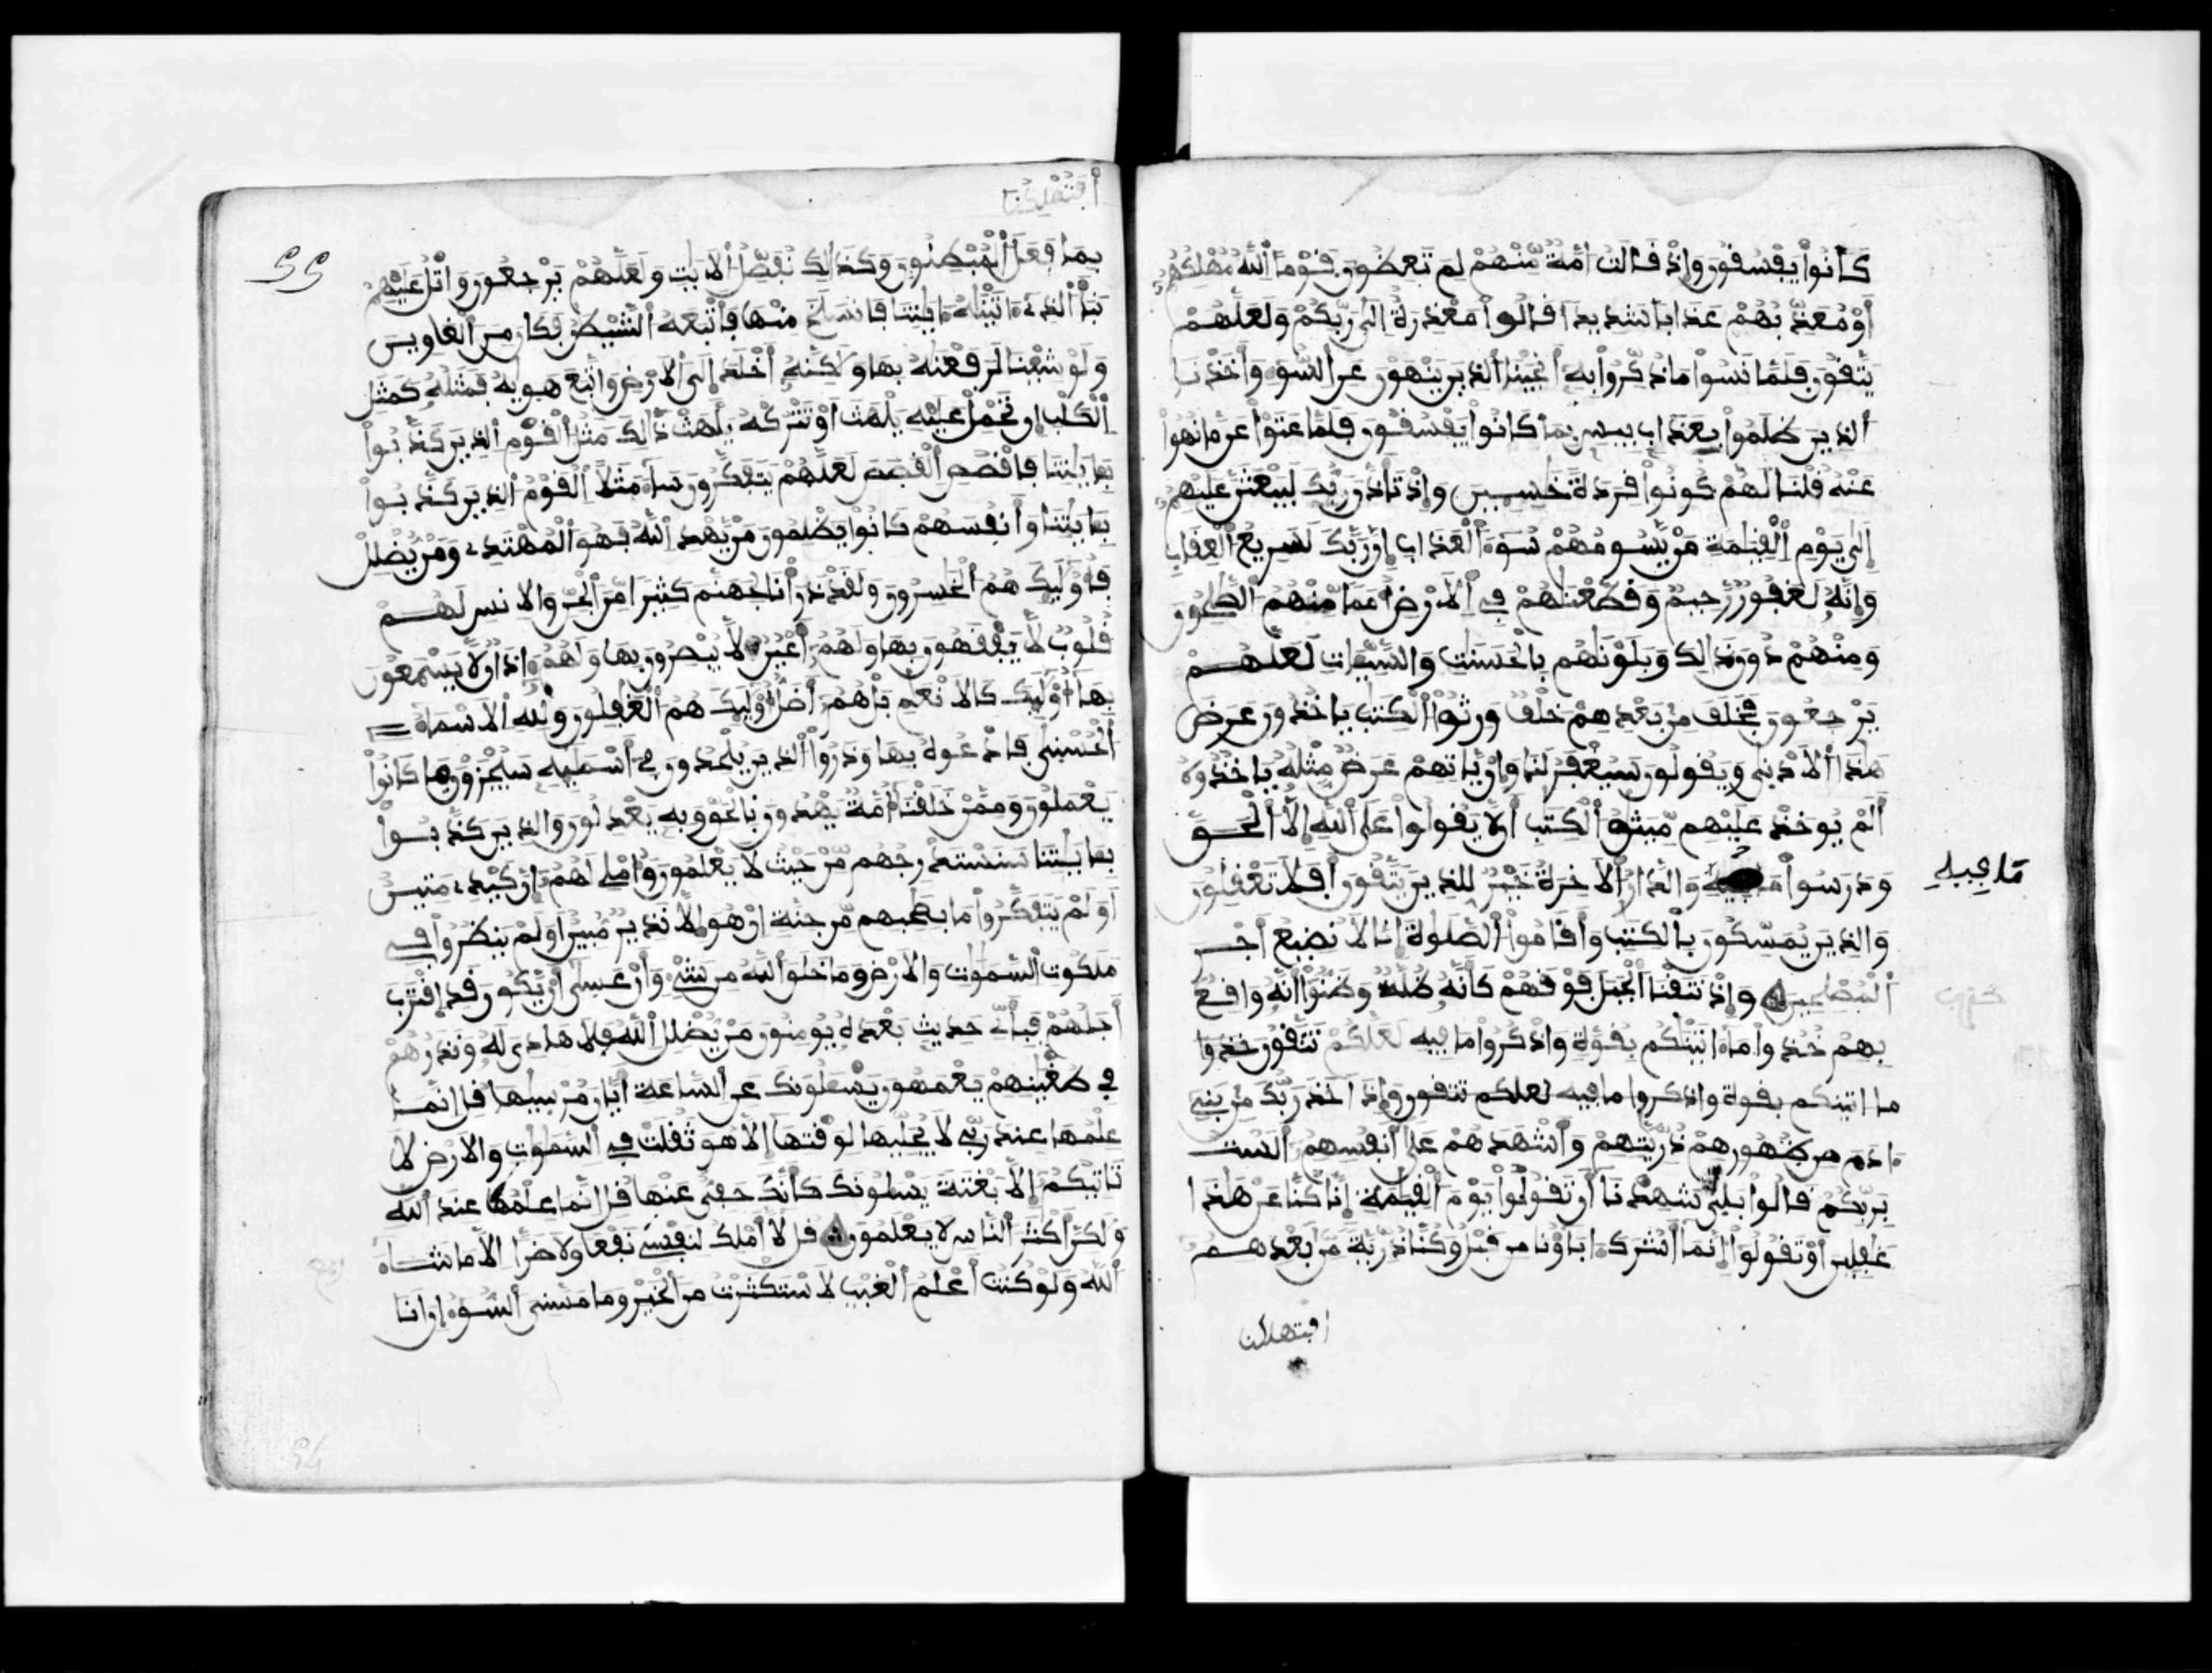 كَانُوا يَفْسُقُونَ وَإِذْ قَالَتْ أُمَّةٌ مِّنْهُمْ لِمَ تَعِظُونَ قَوْماً اللَّهُ مُهْلِكُهُمْ
أَوْ مُعَذِّبُهُمْ عَذَاباً شَدِيداً قَالُوا مَعْذِرَةٌ إِلَى رَبِّكُمْ وَلَعَلَّهُمْ
يَتَّقُونَ فَلَمَّا نَسُوا مَا ذُكِّرُوا بِهِ أَنجَيْنَا الذِينَ يَنْهَوْنَ عَنِ السُّوءِ وَأَخَذْنَا
الذِينَ ظَلَمُوا بِعَذَابٍ بِيسٍ بِمَا كَانُوا يَفْسُقُونَ فَلَمَّا عَتَوْا عَن مَّا نُهُوا
عَنْهُ قُلْنَا لَهُمْ كُونُوا قِرَدَةً خَسِـِٕينَ وَإِذْ تَأَذَّنَ رَبُّكَ لَيَبْعَثَنَّ عَلَيْهِمْ
إِلَى يَوْمِ الْقِيَمَةِ مَنْ يَّسُومُهُمْ سُوءَ الْعَذَابِ إِنَّ رَبَّكَ لَسَرِيعُ الْعِقَابِ
وَإِنَّهُ لَغَفُورٌ رَّحِيمٌ وَقَطَّعْنَهُمْ فِي الأَرْضِ أُمَماً مِّنْهُمُ الصَّلِحُونَ
وَمِنْهُمْ دُونَ ذَالِكَ وَبَلَوْنَهُم بِالْحَسَنَتِ وَالسَّيِّـَٔاتِ لَعَلَّهُمْ
يَرْجِعُونَ فَخَلَفَ مِن بَعْدِهِمْ خَلْفٌ وَرِثُوا الْكِتَبَ يَاخُذُونَ عَرَضَ
هَذَا الأَدْنَى وَيَقُولُونَ سَيُغْفَرُ لَنَا وَإِنْ يَّاتِهِمْ عَرَضٌ مِّثْلُهُ يَاخُذُوهُ
أَلَمْ يُوخَذْ عَلَيْهِم مِّيثَقُ الْكِتَبِ أَن لاَّ يَقُولُوا عَلَى اللَّهِ إِلاَّ الْحَقَّ
وَدَرَسُوا وَالدَّارُ الاَخِرَةُ خَيْرٌ لِّلذِينَ يَتَّقُونَ أَفَلاَ تَعْقِلُونَ
مَا فِيهِ
وَالذِينَ يُمَسِّكُونَ بِالْكِتَبِ وَأَقَامُوا الصَّلَوةَ إِنَّا لاَ نُضِيعُ أَجْرَ
الْمُصْلِحِينَ وَإِذْ نَتَقْنَا الْجَبَلَ فَوْقَهُمْ كَأَنَّهُ ظُلَّةٌ وَظَنُّوا أَنَّهُ وَاقِعٌ
بِهِمْ خُذُوا مَا ءَاتَيْنَكُم بِقُوَّةٍ وَاذْكُرُوا مَا فِيهِ لَعَلَّكُمْ تَتَّقُونَ خذوا
ما اتينكم بقوة واذكروا ما فيه لعلكم تتقون وَإِذَ اَخَذَ رَبُّكَ مِن بَنِي
ءَادَمَ مِن ظُهُورِهِمْ ذُرِّيَّتِهِمْ وَأَشْهَدَهُمْ عَلَى أَنفُسِهِمْ أَلَسْتُ
بِرَبِّكُمْ قَالُوا بَلَى شَهِدْنَا أَن تَقُولُوا يَوْمَ الْقِيَمَةِ إِنَّا كُنَّا عَنْ هَذَا
غَفِلِينَ أَوْ تَقُولُوا إِنَّمَا أَشْرَكَ ءَابَاؤُنَا مِن قَبْلُ وَكُنَّا ذُرِّيَّةً مِّن بَعْدِهِمْ
افتهلكنا
أَفَتُهْلِكُنَا
55
بِمَا فَعَلَ الْمُبْطِلُونَ وَكَذَالِكَ نُفَصِّلُ الاَيَتِ وَلَعَلَّهُمْ يَرْجِعُونَ وَاتْلُ عَلَيْهِمْ
نَبَأَ الذِي ءَاتَيْنَهُ ءَايَتِنَا فَانسَلَخَ مِنْهَا فَأَتْبَعَهُ الشَّيْطَنُ فَكَانَ مِنَ الْغَاوِينَ
وَلَوْ شِئْنَا لَرَفَعْنَهُ بِهَا وَلَكِنَّهُ أَخْلَدَ إِلَى الاَرْضِ وَاتَّبَعَ هَوَيهُ فَمَثَلُهُ كَمَثَلِ
الْكَلْبِ إِن تَحْمِلْ عَلَيْهِ يَلْهَثَ اَوْ تَتْرُكْهُ يَلْهَثْ ذَّالِكَ مَثَلُ الْقَوْمِ الذِينَ كَذَّبُوا
بِـَٔايَتِنَا فَاقْصُصِ الْقَصَصَ لَعَلَّهُمْ يَتَفَكَّرُونَ سَاءَ مَثَلاً الْقَوْمُ الذِينَ كَذَّبُوا
بِـَٔايَتِنَا وَأَنفُسَهُمْ كَانُوا يَظْلِمُونَ مَنْ يَّهْدِ اللَّهُ فَهُوَ الْمُهْتَدِي وَمَنْ يُّضْلِلْ
فَأُوْلَئِكَ هُمُ الْخَسِرُونَ وَلَقَدْ ذَرَأْنَا لِجَهَنَّمَ كَثِيراً مِّنَ الْجِنِّ وَالاِنسِ لَهُمْ
قُلُوبٌ لاَّ يَفْقَهُونَ بِهَا وَلَهُمْ أَعْيُنٌ لاَّ يُبْصِرُونَ بِهَا وَلَهُمْ ءَاذَانٌ لاَّ يَسْمَعُونَ
بِهَا أُوْلَئِكَ كَالاَنْعَمِ بَلْ هُمْ أَضَلُّ أُوْلَئِكَ هُمُ الْغَفِلُونَ وَلِلَّهِ الاَسْمَاءُ
الْحُسْنَى فَادْعُوهُ بِهَا وَذَرُوا الذِينَ يُلْحِدُونَ فِي أَسْمَئِهِ سَيُجْزَوْنَ مَا كَانُوا
يَعْمَلُونَ وَمِمَّنْ خَلَقْنَا أُمَّةٌ يَهْدُونَ بِالْحَقِّ وَبِهِ يَعْدِلُونَ وَالذِينَ كَذَّبُوا
بِـَٔايَتِنَا سَنَسْتَدْرِجُهُم مِّنْ حَيْثُ لاَ يَعْلَمُونَ وَأُمْلِي لَهُمْ إِنَّ كَيْدِي مَتِينٌ
أَوَلَمْ يَتَفَكَّرُوا مَا بِصَحِبِهِم مِّن جِنَّةٍ إِنْ هُوَ إِلاَّ نَذِيرٌ مُّبِينٌ أَوَلَمْ يَنظُرُوا فِي
مَلَكُوتِ السَّمَوَتِ وَالاَرْضِ وَمَا خَلَقَ اللَّهُ مِن شَيْءٍ وَأَنْ عَسَى أَنْ يَّكُونَ قَدِ اِقْتَرَبَ
أَجَلُهُمْ فَبِأَيِّ حَدِيثٍ بَعْدَهُ يُومِنُونَ مَنْ يُّضْلِلِ اللَّهُ فَلاَ هَادِيَ لَهُ وَنَذَرُهُمْ
فِي طُغْيَنِهِمْ يَعْمَهُونَ يَسْـَٔلُونَكَ عَنِ السَّاعَةِ أَيَّانَ مُرْسَيهَا قُلِ انَّمَا
عِلْمُهَا عِندَ رَبِّي لاَ يُجَلِّيهَا لِوَقْتِهَا إِلاَّ هُوَ ثَقُلَتْ فِي السَّمَوَتِ وَالاَرْضِ لاَ
تَاتِيكُمْ إِلاَّ بَغْتَةً يَسْـَٔلُونَكَ كَأَنَّكَ حَفِيٌّ عَنْهَا قُلِ انَّمَا عِلْمُهَا عِندَ اللَّهِ
وَلَكِنَّ أَكْثَرَ النَّاسِ لاَ يَعْلَمُونَ قُل لاَّ أَمْلِكُ لِنَفْسِي نَفْعاً وَلاَ ضَرّاً الاَّ مَا شَاءَ
اللَّهُ وَلَوْ كُنتُ أَعْلَمُ الْغَيْبَ لاَسْتَكْثَرْتُ مِنَ الْخَيْرِ وَمَا مَسَّنِيَ السُّوءُ إِنَ انَا